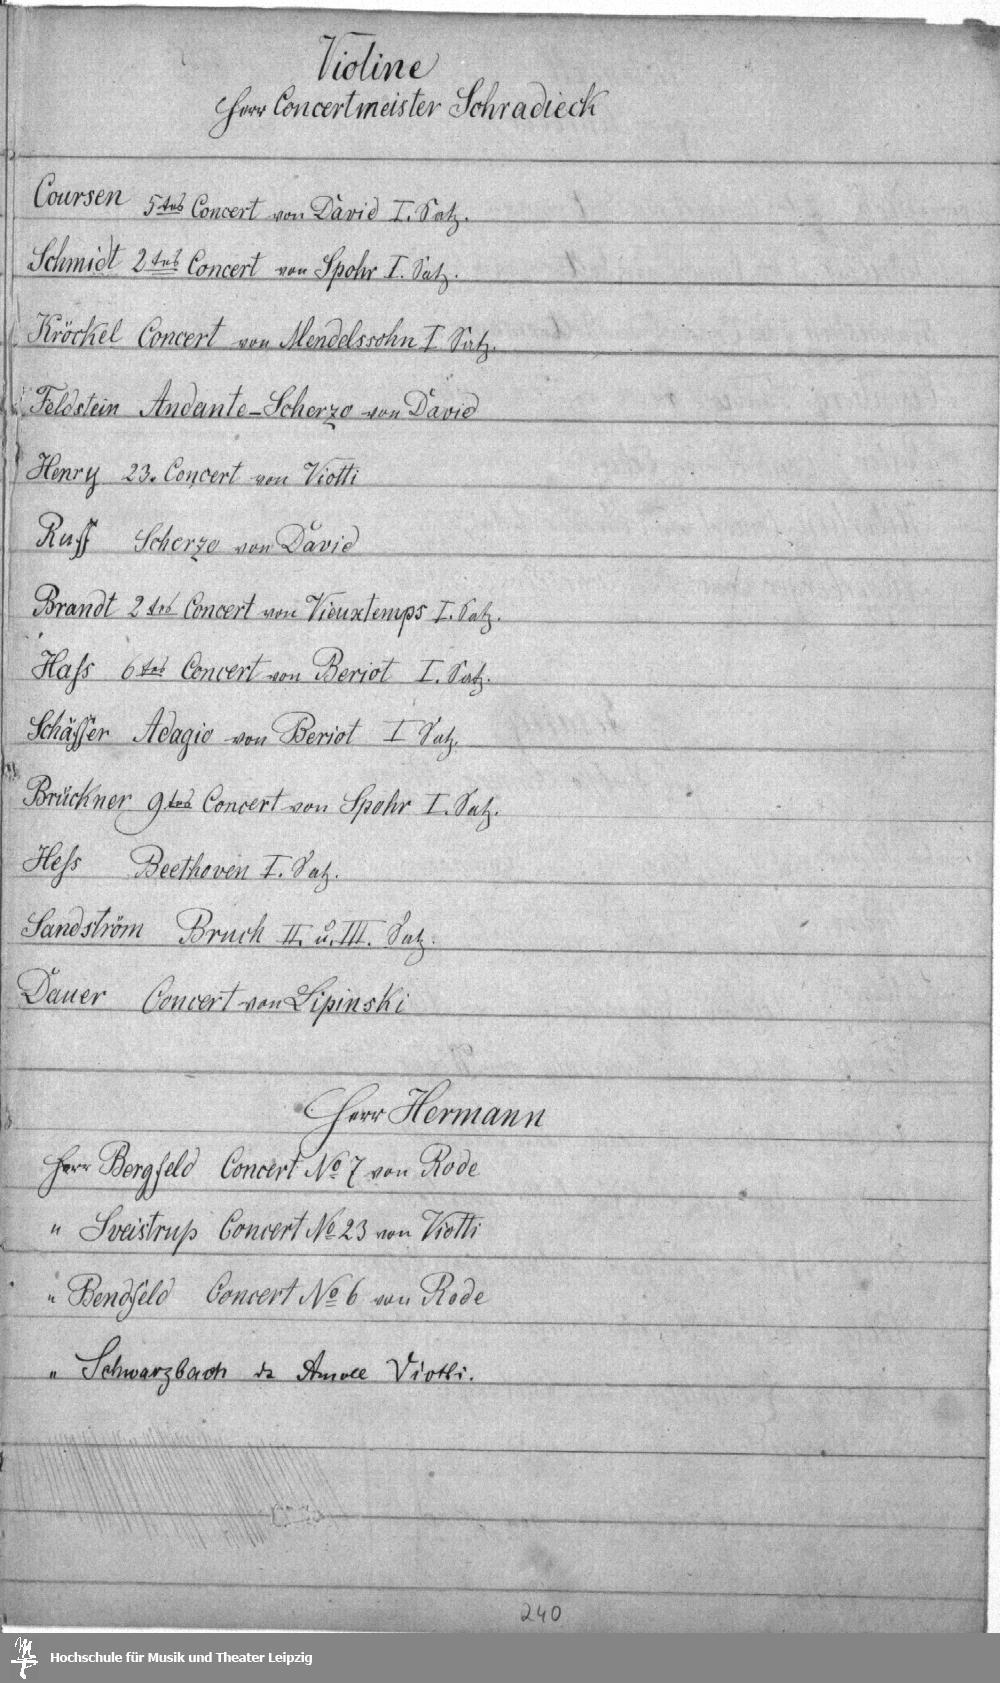 Violine
Herr Concertmeister Schradieck
Coursen 5tes Concert von David I. Satz.
Schmidt 2tes Concert von Spohr I. Satz.
Kröckel Concert von Mendelssohn I Satz.
Feldstein Andante-Scherzo von David
Henry 23. Concert von Viotti
Ruff Scherzo von David
Brandt 2tes Concert von Vieuxtemps I. Satz.
Haſs 6tes Concert von Beriot I. Satz.
Schäffer Adagio von Beriot I Satz.
Brückner 9tes Concert von Spohr I. Satz.
Heſs Beethoven I. Satz.
Sandström Bruch II. u. III. Satz.
Dauer Concert von Lipinski
Herr Hermann
Herr Bergfeld Concert No 7 von Rode
" Sveistrup Concert No 23 von Viotti
" Bendfeld Concert No 6 von Rode
" Schwarzbach do Amoll Viotti.
240
Hochschule für Musik und Theater Leipzig